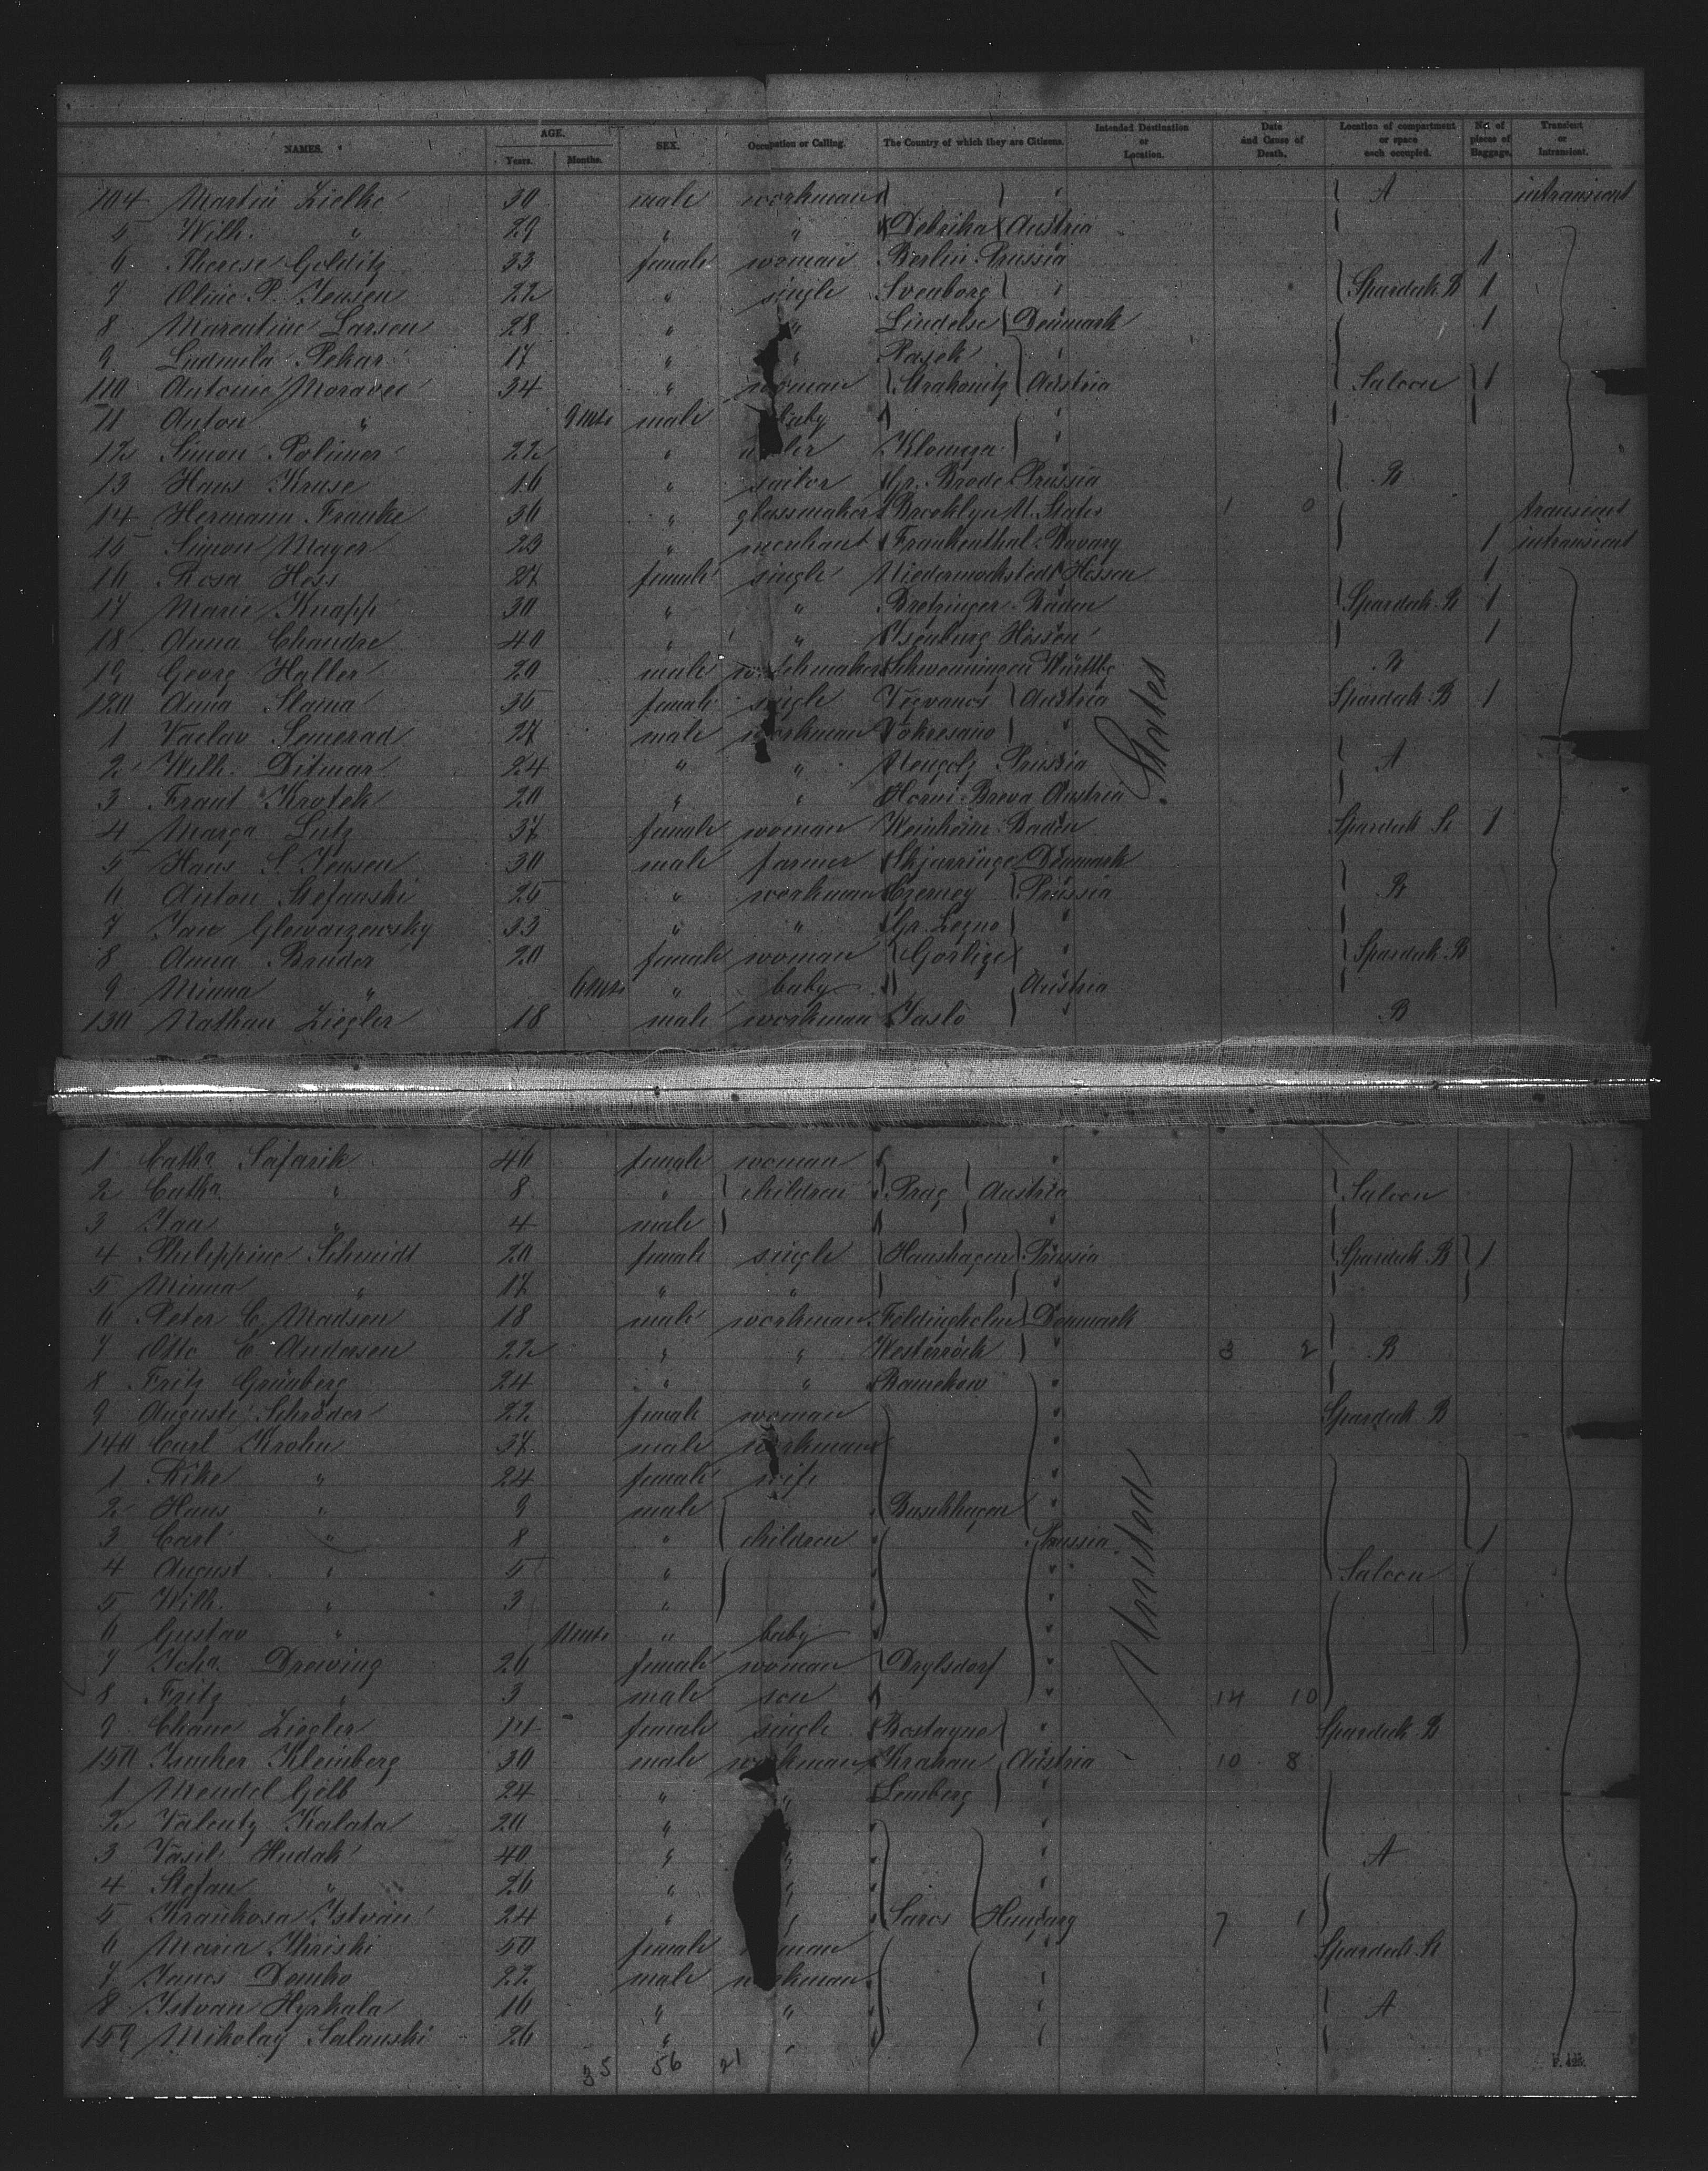 NAMES. AGE. Years. Months. SEX. Occupation or Calling. The Country of which they are Citizens. Intended Destination or Location. Date and Cause of Death. Location of compartment or space each occupied. No. of pieces of Baggage. Transient or Intransient.
104 Martin Zielke 30 male workman " A intransient
5 Wilh. " 29 " " Austria
6 Therese Golditz 33 female woman Berlin Prussia 1
7 Oline P. Jensen 22 " single Svenborg " Spardeck B 1
8 Marentine Larsen 28 " " Lindelse Denmark 1
9 Ludmila Pekar 17 " " Pasek "
110 Antonie Moravec 34 " woman Strakonitz Austria Saloon 1
11 Anton " 9 mts male baby "
12 Simon 22 " "
13 Hans Kruse 16 " sailor Gr. Brode Prussia B
14 Hermann Franke 36 " glassmaker Brooklyn U. States 1 0 transient
15 Simon Mayer 23 " merchant Frankenthal Bavary 1 intransient
16 Rosa Hess 27 female single Hessen 1
17 Marie Knapp 30 " " Bretzingen Baden Spardeck B 1
18 Anna Chandre 40 " " Isenburg Hessen 1
19 Georg Haller 20 male Schwenningen Württbg B
120 Anna Slama 35 female single Austria Spardeck B 1
1 Vaclav Semerad 27 male workman "
2 Wilh. Ditmar 24 " " Prussia A
3 20 " " Austria
4 Marga Lutz 37 female woman Weinheim Baden Spardeck St 1
5 Hans S. Jensen 30 male farmer Denmark
6 Anton Stefanski 25 " workman Prussia B
7 Jan 33 " " "
8 Anna Bruder 20 female woman Gorlize " Spardeck B
9 Minna " 6 mts " baby Austria
130 Nathan Ziegler 18 male workman Jaslo " B
States
1 Catha Safarik 46 female woman "
2 Catha " 8 " children Prag Austria Saloon
3 Jan " 4 male "
4 Philippine Schmidt 20 female single Hanshagen Prussia Spardeck B 1
5 Minna " 17 " " "
6 Peter C. Madsen 18 male workman Denmark
7 Otto C. Andersen 22 " " " 3 2 B
8 Fritz Grünberg 24 " " Ramekow "
9 Auguste Schröder 22 female woman " Spardeck B
140 Carl Krohn 37 male workman "
1 Rike " 24 female wife "
2 Hans " 9 male Buschhagen "
3 Carl " 8 " children Prussia 1
4 August " 5 " " Saloon
5 Wilh. " 3 " "
6 Gustav " 11 mts " baby "
7 Joha. Drewing 26 female woman "
8 Fritz " 3 male son " 14 10
9 Chane Ziegler 14 female single " Spardeck B
150 Kleinberg 30 male workman Krakau Austria 10 8
1 Mendel Gelb 24 " " Lemberg "
2 Valenty Kalata 20 " " "
3 Vasil Hudak 40 " " " A
4 Stefan " 26 " " "
5 Istvan 24 " " Saros Hungary 7 1
6 Maria 50 female woman " Spardeck St
7 Janos Demko 22 male workman "
8 Istvan Hyrkala 16 " " " A
159 Mikolay Salanski 26 " " "
United
35 56 21
F. 425.